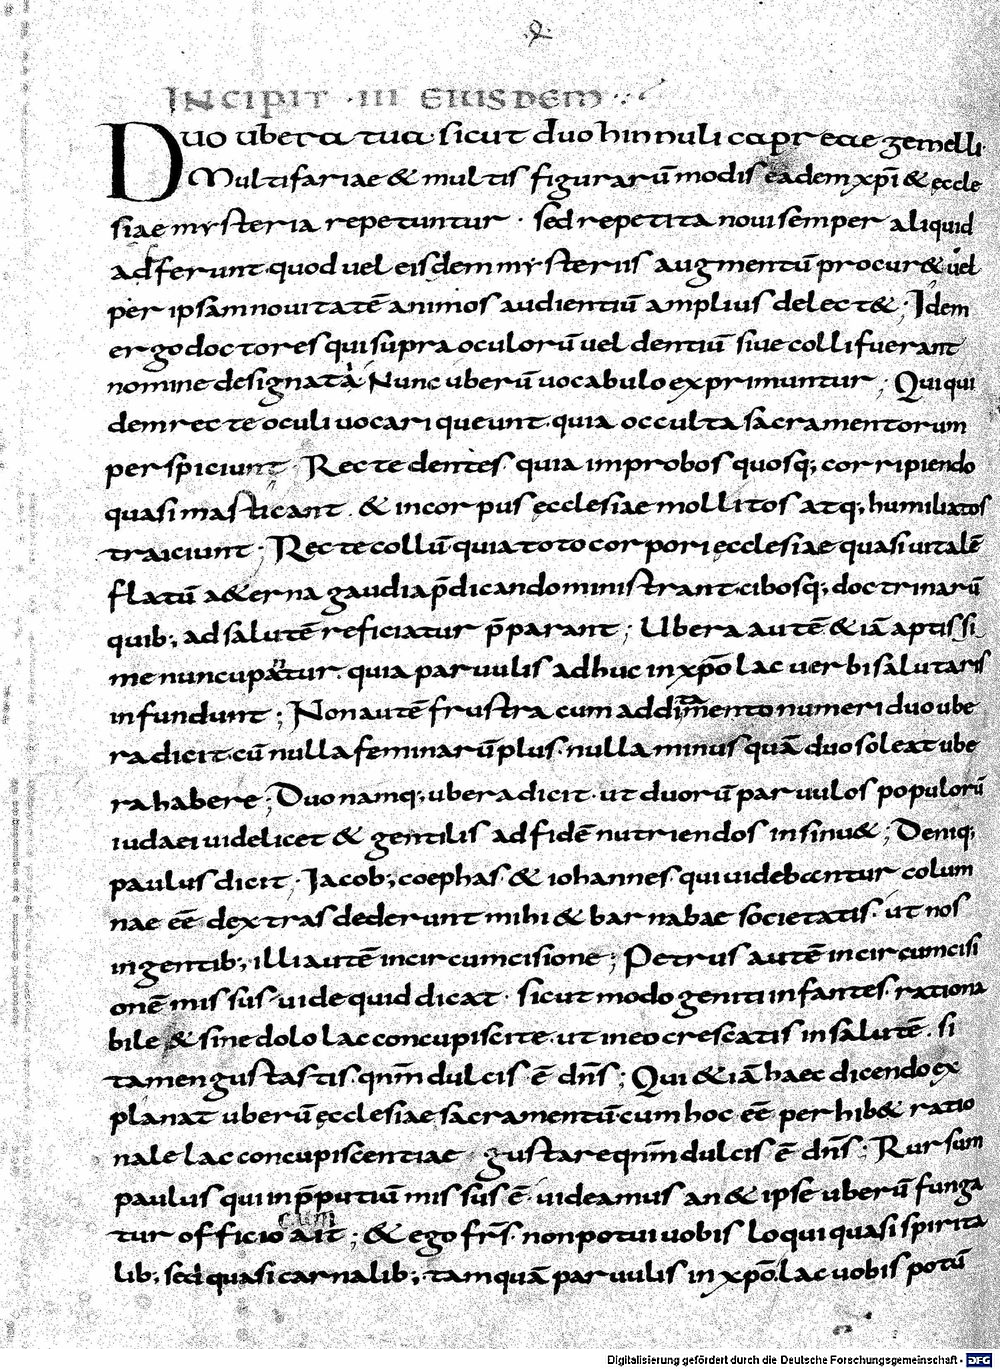 INCIPIT · III EIUSDEM
Duo ubera tua · sicut duo hinnuli capreae gemelli ·
Multifariae & multis figurarū modis eadem xp̄i & eccle
siae mysteria repetuntur · sed repetita noui semper aliquid
adferunt · quod uel eisdem mysteriis augmentū procur& uel
per ipsam nouitatē animos audientiū amplius delect& ; Idem
ergo doctores qui supra oculorū uel dentiū siue colli fuerant
nomine designata Nunc uberū uocabulo exprimuntur ; Qui qui
dem recte oculi uocari queunt · quia occulta sacramentorum
perspiciunt Recte dentes quia improbos quosq; corripiendo
quasi masticant · & in corpus ęcclesiae mollitos atq; humiliatos
traiciunt · Recte collū quia toto corpori ęcclesiae quasi uitalē
flatū a&erna gaudia p̄dicando ministrant · cibosq; doctrinarū
quib; ad salutē reficiatur p̄parant ; Ubera autē &iā aptissi
me nuncupatur · quia paruulis adhuc in xp̄o lac uerbi salutaris
infundunt ; Non autē frustra cum addimento numeri duo ube
ra dicit · cū nulla feminarū plus · nulla minus quā duo soleat ube
ra habere ; Duo namq; ubera dicit · ut duorū paruulos populorū
iudaei uidelicet & gentilis ad fidē nutriendos insinu& ; Deniq;
paulus dicit · Iacob; coephas & iohannes qui uidebantur colum
nae eē dextras dederunt mihi & barnabae societatis · ut nos
in gentib; illi autē in circumcisione ; Petrus autē in circumcisi
onē missus · uide quid dicat · sicut modo geniti infantes · rationa
bile & sine dolo lac concupiscite · ut in eo crescatis in salutē · si
tamen gustastis · qn̄m dulcis ē dn̄s ; Qui &iā haec dicendo ex
planat uberū ęcclesiae sacramentū cum hoc eē perhib& ratio
nale lac concupiscentiae gustare qn̄m dulcis ē dn̄s ; Rursum
paulus qui in p̄putiū missus ē · uideamus an & ipse uberū funga
cum
tur officio ait ; & ego fr̄s · non potui uobis loqui quasi spirita
lib; sed quasi carnalib; tamquā paruulis in xp̄o · lac uobis potū
Digitalisierung gefördert durch die Deutsche Forschungsgemeinschaft - DFG